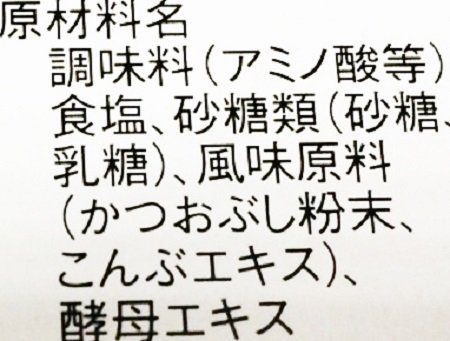 原材料名
調味料(アミノ酸等)
食塩、砂糖類(砂糖、
乳糖)、風味原料
(かつおぶし粉末、
こんぶエキス)、
酵母エキス